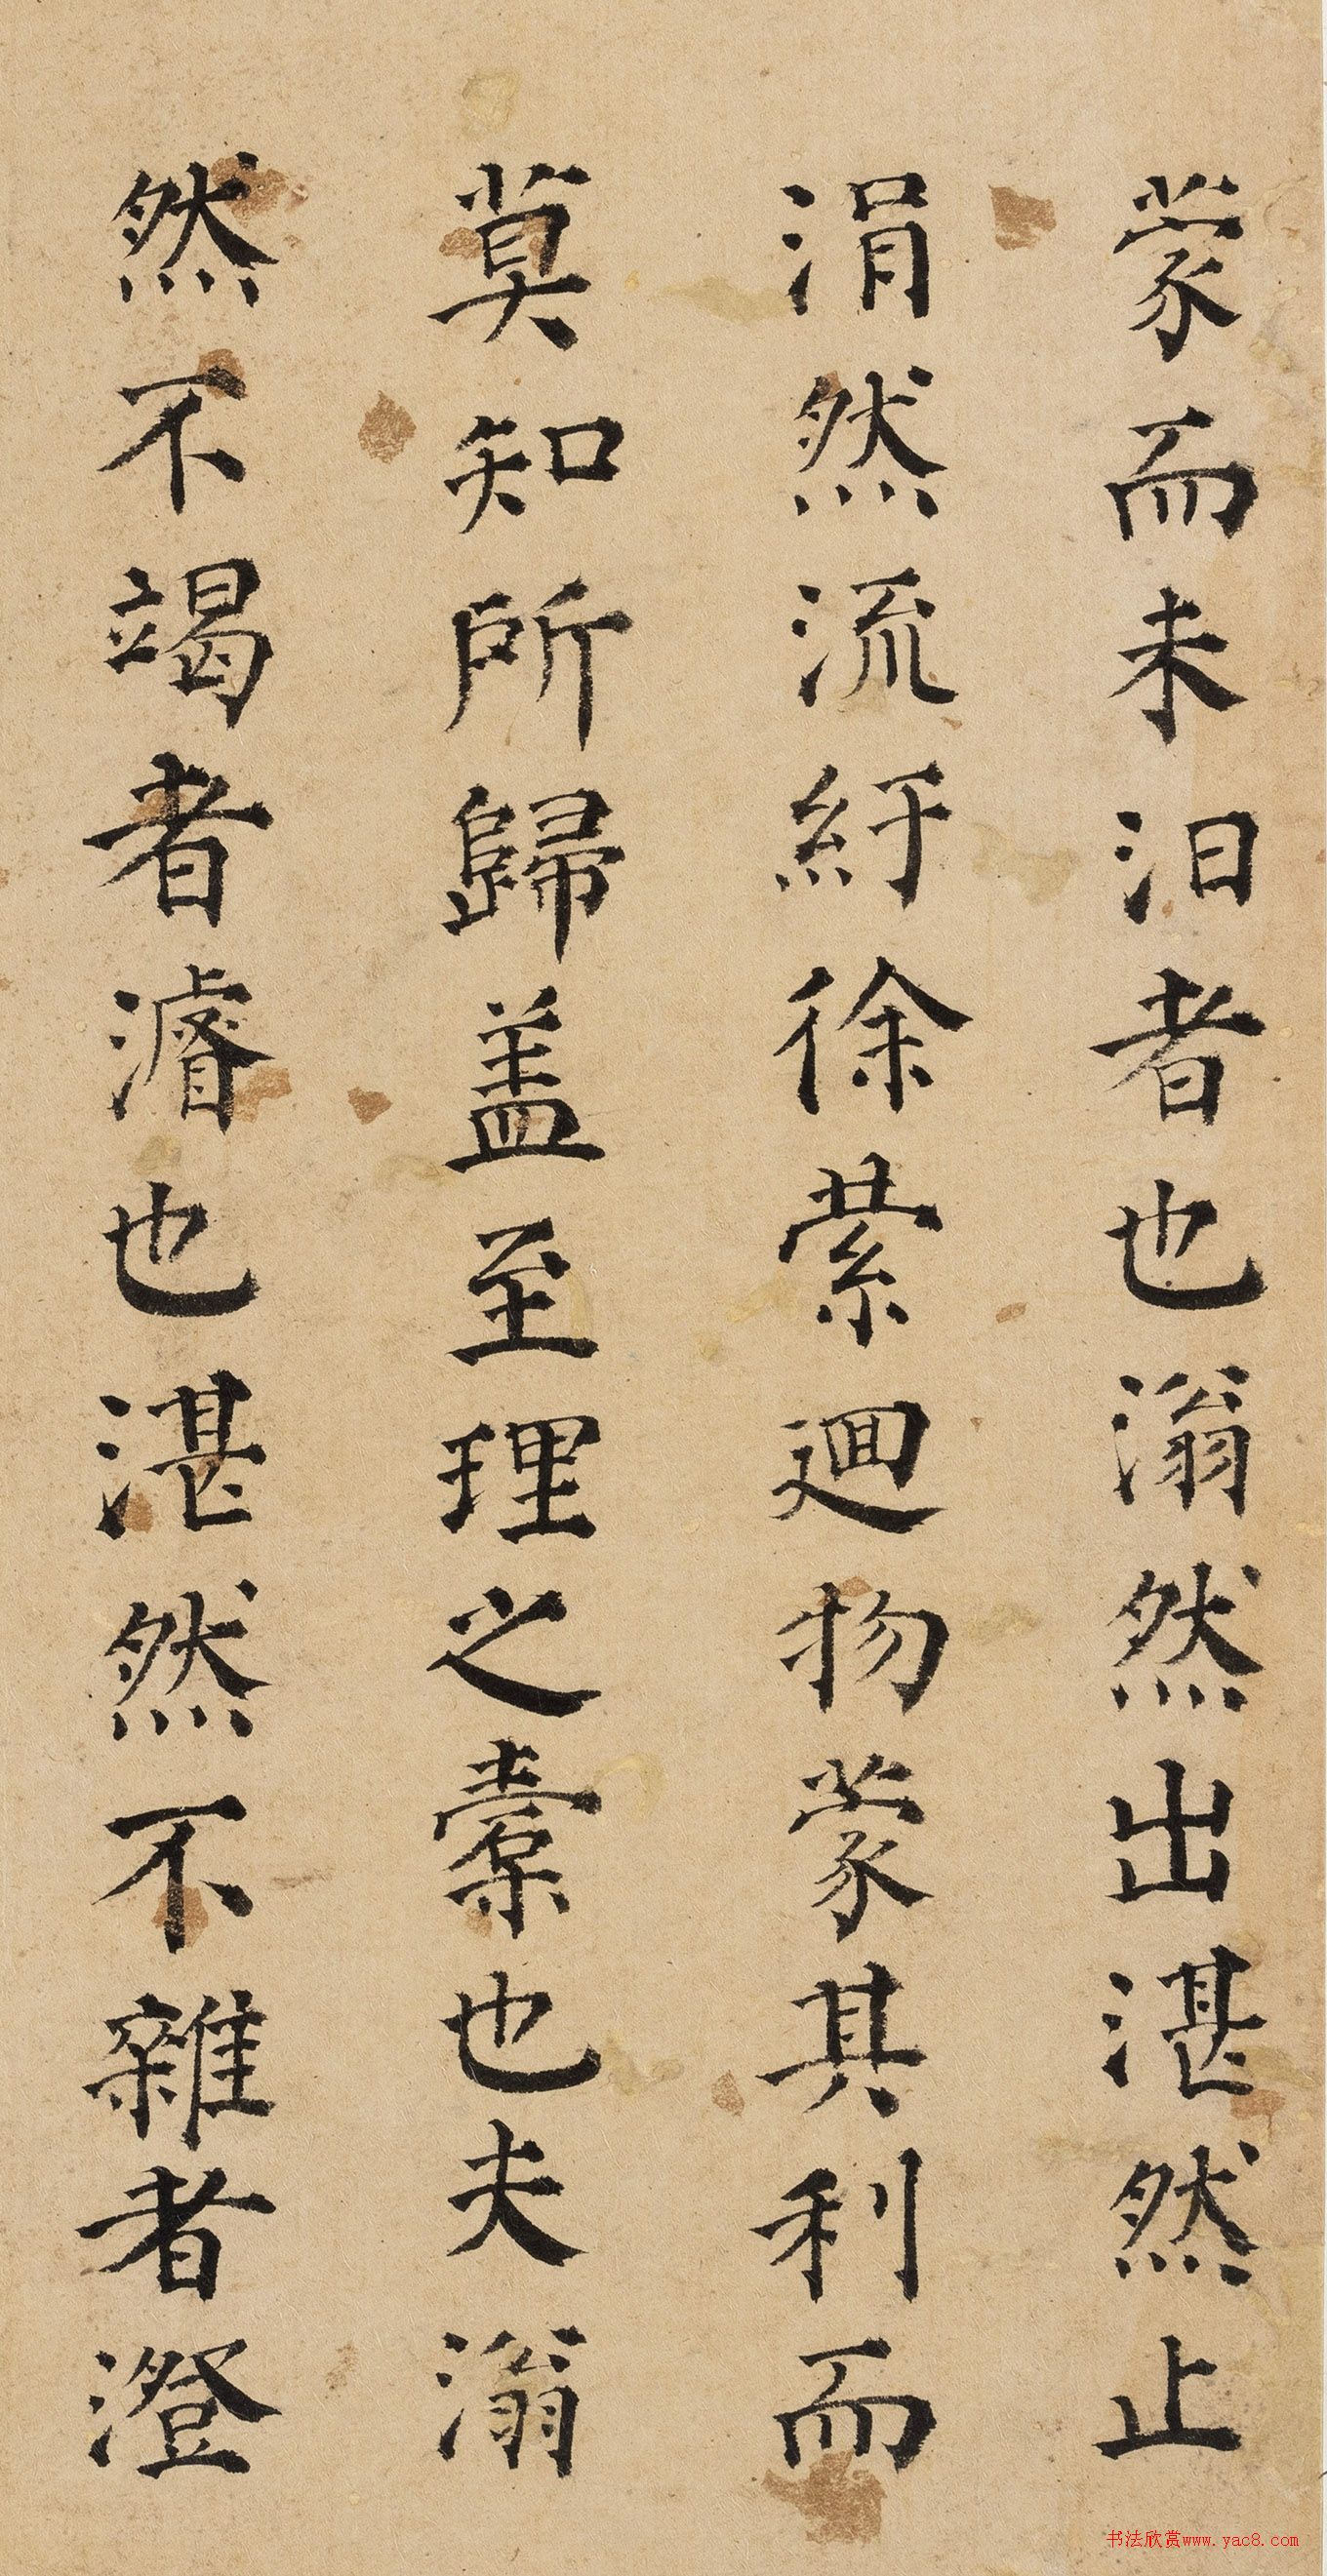 蒙而未汩者也滃然出湛然止
涓然流紆徐縈迴物蒙其利而
莫知所歸盖至理之橐也夫滃
然不竭者濬也湛然不雜者澄
书法欣赏www.yac8.com